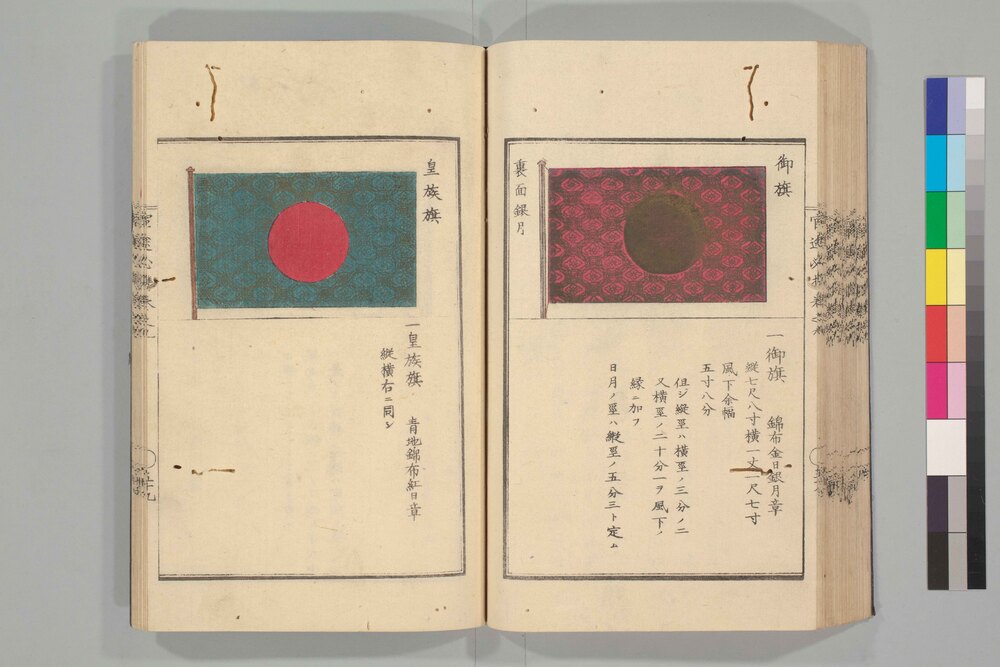 御旗
裏面銀月
一御旗 錦布金日銀月章
縦七尺八寸横一丈一尺七寸
風下余幅
五寸八分
但シ縦置ハ横置ノ三分ノ二
又横置ノ二十分一ヲ風下ノ
縁ニ加フ
日月ノ置ハ縦置ノ五分三ト定ム
皇族旗
一皇族旗 青地錦布紅日章
縦横右ニ同シ